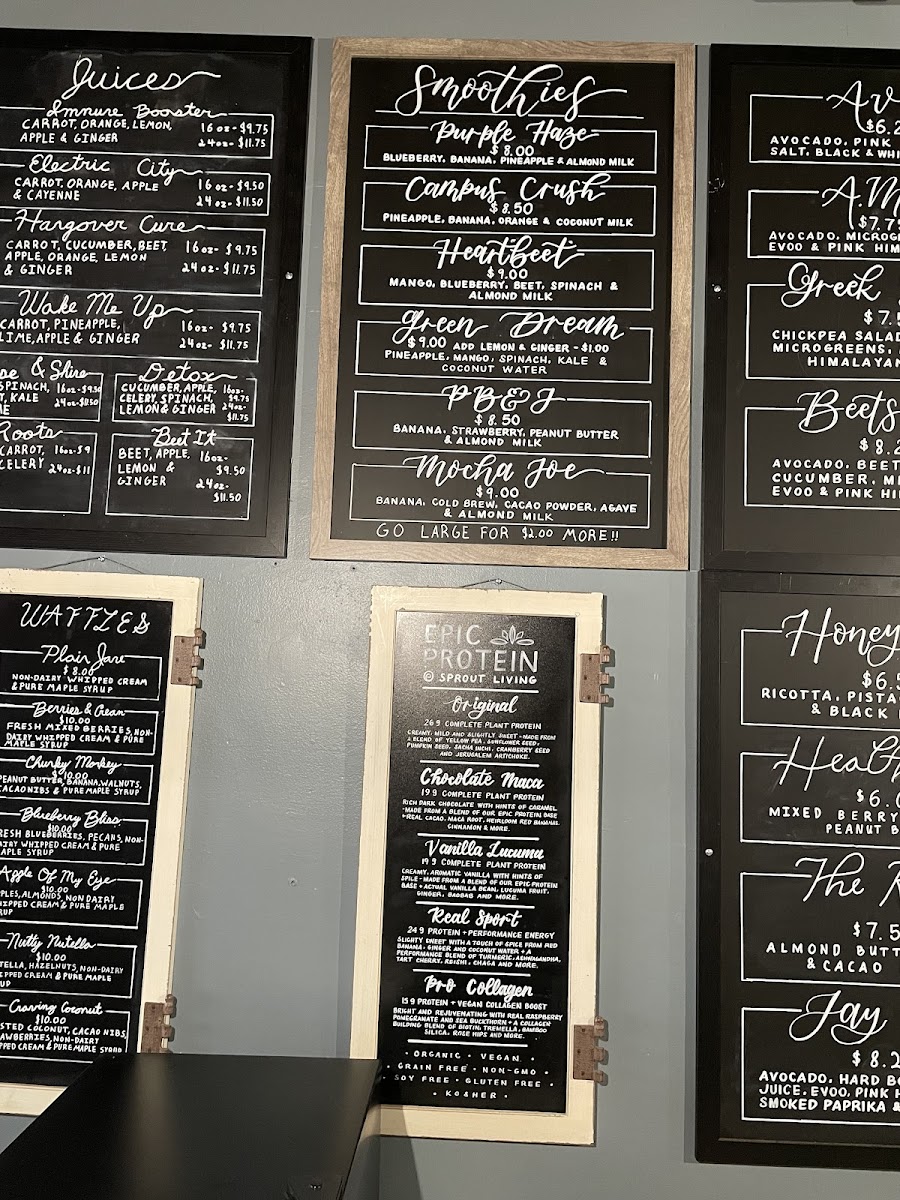 Juices
Immune Booster
CARROT, ORANGE, LEMON,
APPLE & GINGER
16oz - $9.75
24oz - $11.75
Electric City
CARROT, ORANGE, APPLE
& CAYENNE
16oz - $9.50
24oz - $11.50
Hangover Cure
CARROT, CUCUMBER, BEET,
APPLE, ORANGE, LEMON
& GINGER
16oz - $9.75
24oz - $11.75
Wake Me Up
CARROT, PINEAPPLE,
LIME, APPLE & GINGER
16oz - $9.75
24oz - $11.75
& Shine
SPINACH,
KALE
16oz - $9.50
24oz - $11.50
Detox
CUCUMBER, APPLE,
CELERY, SPINACH,
LEMON & GINGER
16oz-
$9.75
24oz-
$11.75
Roots
CARROT,
CELERY
16oz - $9
24oz - $11
Beet It
BEET, APPLE,
LEMON &
GINGER
16oz-
$9.50
24oz-
$11.50
Smoothies
Purple Haze
$8.00
BLUEBERRY, BANANA, PINEAPPLE & ALMOND MILK
Campus Crush
$8.50
PINEAPPLE, BANANA, ORANGE & COCONUT MILK
Heartbeet
$9.00
MANGO, BLUEBERRY, BEET, SPINACH &
ALMOND MILK
Green Dream
$9.00 ADD LEMON & GINGER - $1.00
PINEAPPLE, MANGO, SPINACH, KALE &
COCONUT WATER
PB&J
$8.50
BANANA, STRAWBERRY, PEANUT BUTTER
& ALMOND MILK
Mocha Joe
$9.00
BANANA, COLD BREW, CACAO POWDER, AGAVE
& ALMOND MILK
GO LARGE FOR $2.00 MORE!!
AVOCADO, PINK
SALT, BLACK &
AVOCADO,
EVOO & PINK
Greek
CHICKPEA
MICROGREENS,
Beets
AVOCADO, BEET
CUCUMBER,
EVOO & PINK
WAFFLES
Plain Jane
$8.00
NON-DAIRY WHIPPED CREAM
& PURE MAPLE SYRUP
Berries & Cream
$10.00
FRESH MIXED BERRIES, NON-
DAIRY WHIPPED CREAM & PURE
MAPLE SYRUP
Chunky Monkey
$10.00
PEANUT BUTTER, BANANA, WALNUTS,
CACAO NIBS & PURE MAPLE SYRUP
Blueberry Bliss
$10.00
FRESH BLUEBERRIES, PECANS, NON-
DAIRY WHIPPED CREAM & PURE
MAPLE SYRUP
Apple Of My Eye
$10.00
APPLES, ALMONDS, NON DAIRY
WHIPPED CREAM & PURE MAPLE
SYRUP
Nutty Nutella
$10.00
NUTELLA, HAZELNUTS, NON-DAIRY
WHIPPED CREAM & PURE MAPLE
SYRUP
Craving Coconut
$10.00
COCONUT, CACAO NIBS,
STRAWBERRIES, NON-DAIRY
WHIPPED CREAM & PURE MAPLE SYRUP
EPIC
PROTEIN
© SPROUT LIVING
Original
26g COMPLETE PLANT PROTEIN
CREAMY, MILD AND SLIGHTLY SWEET - MADE FROM
A BLEND OF YELLOW PEA, SUNFLOWER SEED,
PUMPKIN SEED, SACHA INCHI, CRANBERRY SEED
AND JERUSALEM ARTICHOKE.
Chocolate Maca
19g COMPLETE PLANT PROTEIN
RICH DARK CHOCOLATE WITH HINTS OF CARAMEL
- MADE FROM A BLEND OF OUR EPIC PROTEIN BASE
+ REAL CACAO, MACA ROOT, HEIRLOOM RED BANANAS,
CINNAMON & MORE.
Vanilla Lucuma
19g COMPLETE PLANT PROTEIN
CREAMY, AROMATIC VANILLA WITH HINTS OF
SPICE - MADE FROM A BLEND OF OUR EPIC PROTEIN
BASE + ACTUAL VANILLA BEAN, LUCUMA FRUIT,
GINGER, BAOBAB AND MORE.
Real Sport
24g PROTEIN + PERFORMANCE ENERGY
SLIGHTY SWEET WITH A TOUCH OF SPICE FROM RED
BANANA, GINGER AND COCONUT WATER + A
PERFORMANCE BLEND OF TURMERIC, ASHWAGANDHA,
TART CHERRY, REISHI, CHAGA AND MORE.
Pro Collagen
15g PROTEIN + VEGAN COLLAGEN BOOST
BRIGHT AND REJUVENATING WITH REAL RASPBERRY
POMEGRANATE AND SEA BUCKTHORN + A COLLAGEN
BUILDING BLEND OF BIOTIN, TREMELLA, BAMBOO
SILICA, ROSE HIPS AND MORE.
· ORGANIC · VEGAN ·
· GRAIN FREE · NON-GMO ·
SOY FREE · GLUTEN FREE ·
· KOSHER ·
Honey
RICOTTA,
& BLACK
MIXED BERRY
PEANUT
The
ALMOND
& CACAO
Jay
AVOCADO, HARD
JUICE, EVOO, PINK
SMOKED PAPRIKA &